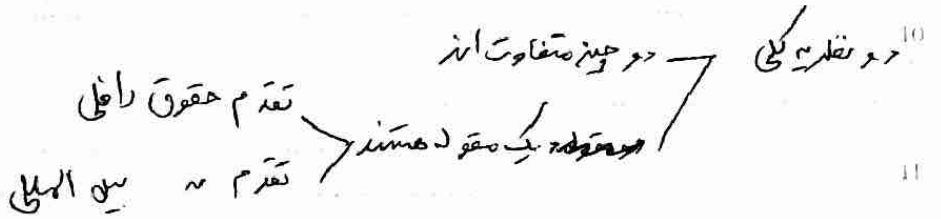 دو نظریه کلی
دو چیز متفاوت اند
یک مقوله هستند
تقدم حقوق داخلی
تقدم 〃 بین المللی
10
11